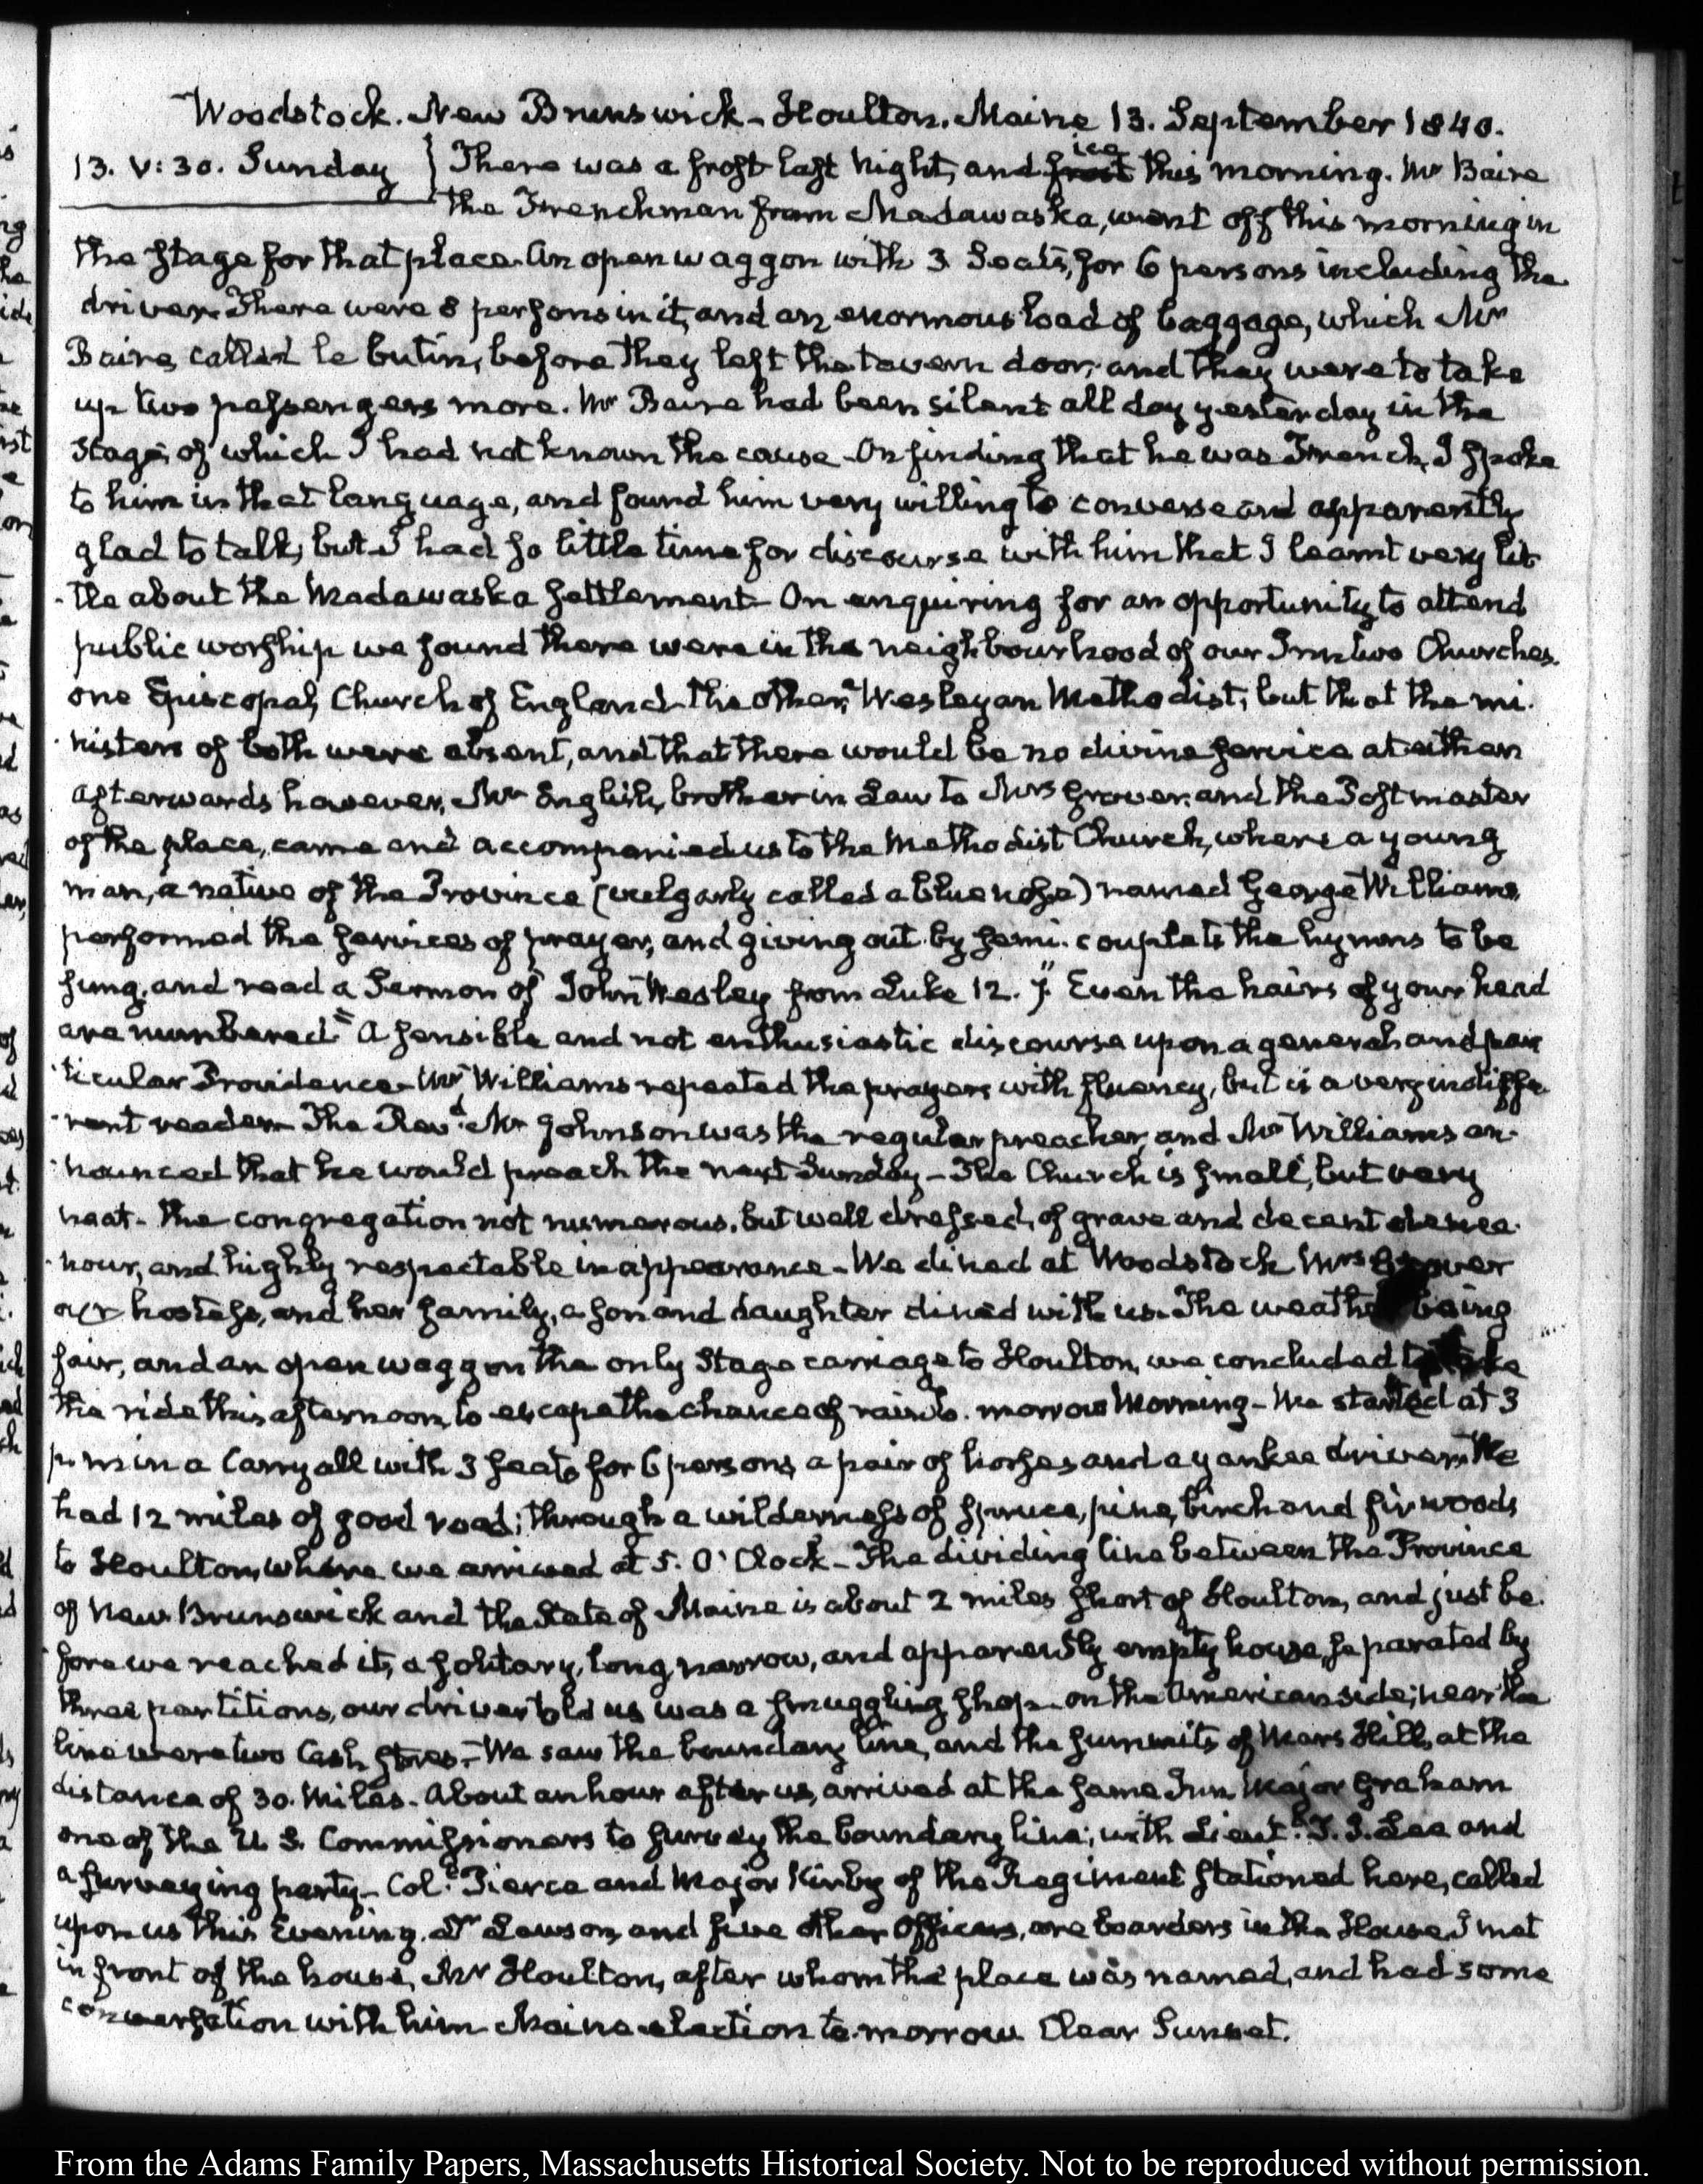 Woodstock. New Brunswick - Houlton. Maine 13. September 1840.
13. V:30. Sunday } There was a frost last Night, and frost ice this morning. Mr Baire
the Frenchman from Madawaska, went off this morning in
the stage for that place. An open waggon with 3 Seats, for 6 persons including the
driver. There were 8 persons in it, and an enormous load of baggage, which Mr
Baire, called le butin, before they left the tavern door, and they were to take
up two passengers more. Mr Baire had been silent all day yesterday in the
Stage, of which I had not known the cause - On finding that he was French, I spoke
to him in that language, and found him very willing to converse and apparently
glad to talk, but I had so little time for discourse with him that I learnt very lit-
-tle about the Madawaska settlement - On enquiring for an opportunity to attend
public worship we found there were in the neighbourhood of our Inn two Churches.
one Episcopal, Church of England - the other, Wesleyan Methodist; but that the mi-
-nisters of both were absent, and that there would be no divine service at either
afterwards however, Mr English, brother in Law to Mrs Grover, and the Postmaster
of the place, came and accompanied us to the Methodist Church, where a young
man, a native of the Province (vulgarly called a blue nose) named George Williams,
performed the services of prayer, and giving out by semi-couplets the hymns to be
sung, and read a Sermon of John Wesley from Luke 12. 7. " Even the hairs of your head
are numbered" A sensible and not enthusiastic discourse upon a general and par
-ticular Providence - Mr Williams repeated the prayers with fluency, but is a very indiffe-
-rent reader - The Revd. Mr Johnson was the regular preacher, and Mr Williams an-
-nounced that he would preach the next Sunday - The Church is small, but very
neat - the congregation not numerous, but well dressed, of grave and decent demea-
-nour, and highly respectable in appearance - We dined at Woodstock Mrs Grover
our hostess, and her family, a son and daughter dined with us. The weather being
fair, and an open waggon the only Stage carriage to Houlton, we concluded to take
the ride this afternoon, to escape the chance of rain to-morrow Morning - We started at 3
p.m. in a Carryall with 3 seats for 6 persons, a pair of horses and a yankee driver. We
had 12 miles of good road; through a wilderness of spruce, pine, birch and fir woods
to Houlton, where we arrived at 5. O'Clock - The dividing line between the Province
of New Brunswick and the State of Maine is about 2 miles short of Houlton, and just be-
-fore we reached it, a solitary, long, narrow, and apparently empty house, separated by
three partitions, our driver told us was a smuggling shop - on the American side; near the
line were two Cash stores. - We saw the boundary line, and the summits of Mars Hill, at the
distance of 30. Miles. About an hour after us, arrived at the same Inn Major Graham
one of the U. S. Commissioners to survey the boundary line; with Lieutt. T. J. Lee and
a surveying party - Coll. Pierce and Major Kirby of the Regiment stationed here, called
upon us this Evening. Dr Lawson, and five other Officers, are boarders in the House. I met
in front of the house, Mr Houlton, after whom the place was named, and had some
conversation with him - Maine election to-morrow. Clear Sunset.
From the Adams Family Papers, Massachusetts Historical Society. Not to be reproduced without permission.